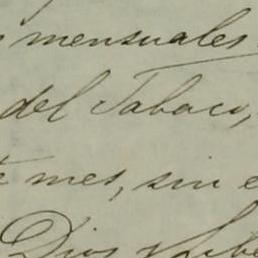 mensuales
del Tabaco,
mes, sin
Dios y Libe